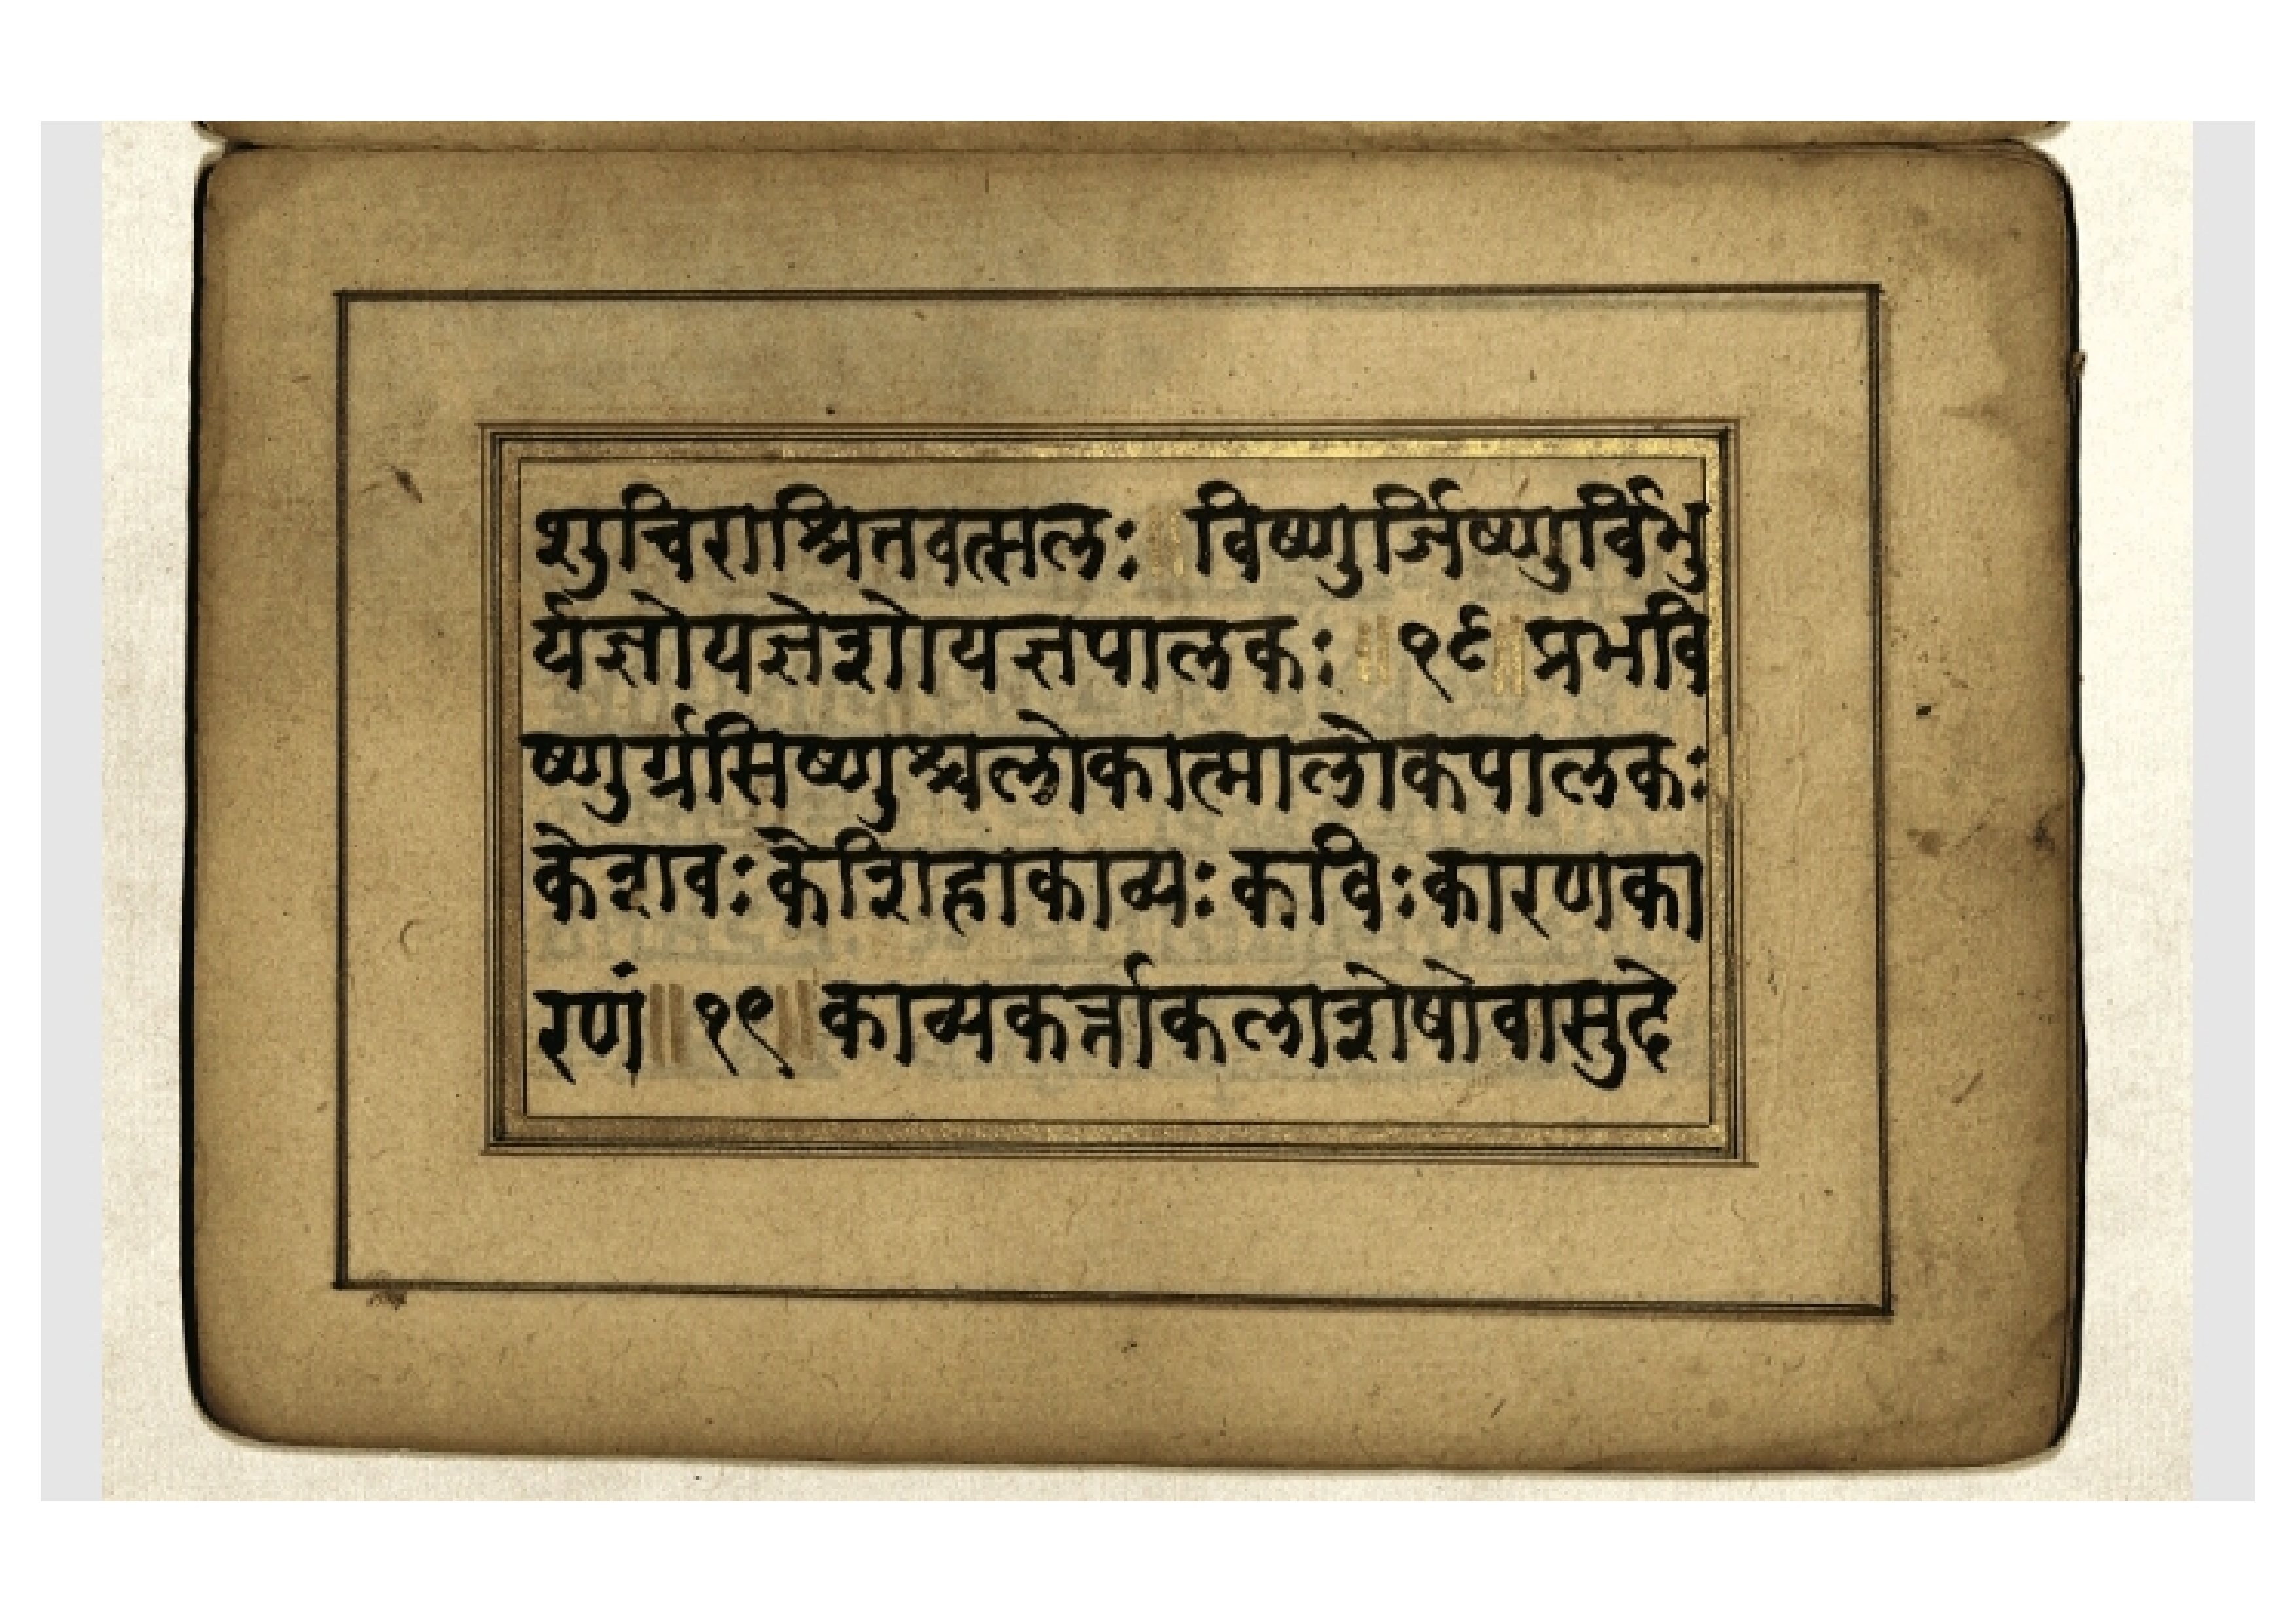 शुचिराश्रितवत्सलः ॥ विष्णुर्जिष्णुर्विभु
र्यज्ञोयज्ञेशोयज्ञपालकः ॥ १८ ॥ प्रभवि
ष्णुर्ग्रसिष्णुश्चलोकात्मालोकपालकः
केशवः केशिहाकाव्यः कविः कारणका
रणं ॥ १९ ॥ काव्यकर्त्ताकलाशेषोवासुदे